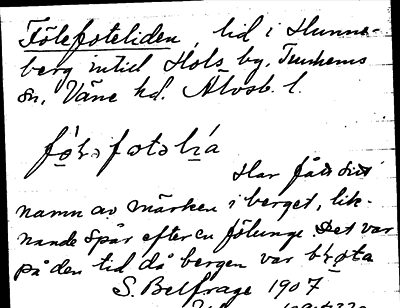 Fölefoteliden, lid i Hunne-
berg intill Hols by, Tunhems
sn, Väne hd. Älvsb. l.
Har fått sitt
namn av märken i berget, lik-
nande spår efter en fölunge. Det var
på den tid då bergen var blöta
S. Belfrage 1907